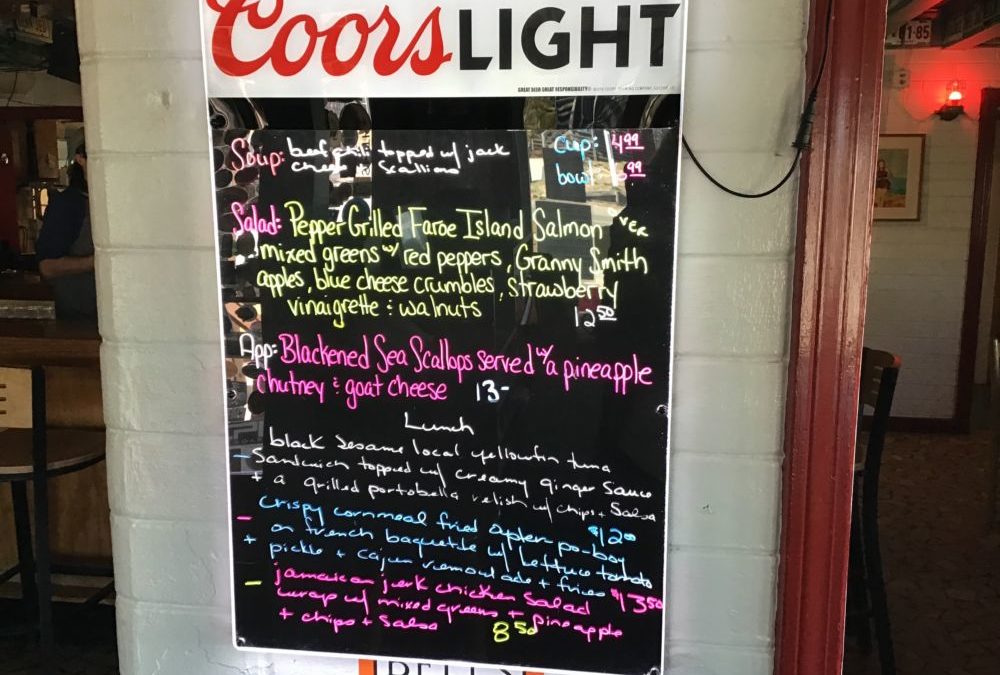 Coors LIGHT
GREAT BEER GREAT RESPONSIBILITY
Soup: beef chili topped w/ jack
cheese + Scallions
Cup: 4.99
bowl: 6.99
Salad: Pepper Grilled Faroe Island Salmon over
mixed greens w/ red peppers, Granny Smith
apples, blue cheese crumbles, strawberry
vinaigrette + walnuts 12.50
App: Blackened Sea Scallops served w/ a pineapple
chutney + goat cheese 13-
Lunch
black sesame local yellowfin tuna
- Sandwich topped w/ creamy ginger sauce
+ a grilled portobella relish w/ chips + Salsa
$12.00
- crispy cornmeal fried oyster po-boy
on french baguette w/ lettuce tomato
+ pickle + cajun remoulade + fries $13.50
- jamaican jerk chicken Salad
wrap w/ mixed greens + pineapple
+ chips + Salsa 8.50
BELL'S
81-85